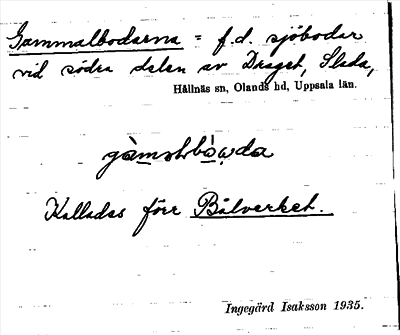 Gammalbodarna = f.d. sjöbodar
vid södra delen av Draget, Slada,
Hållnäs sn, Olands hd, Uppsala län.
Kallades förr Bålverket.
Ingegärd Isaksson 1935.